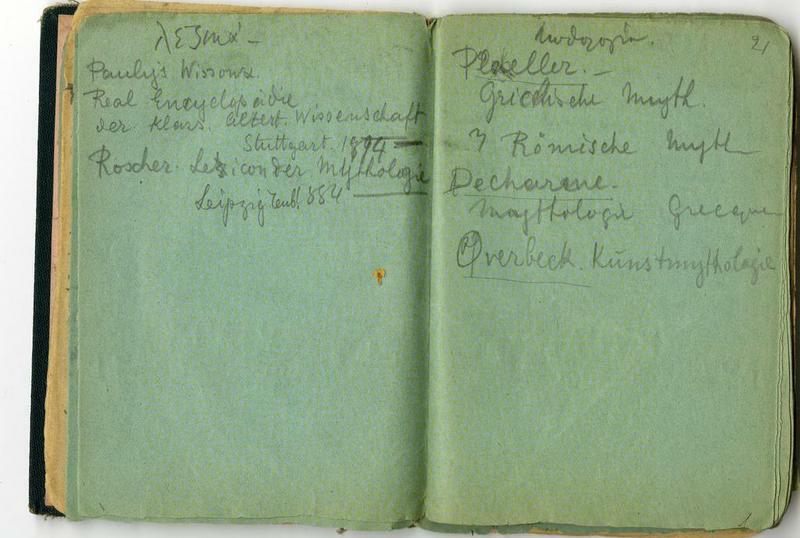 λεξικά –
Pauly's Wissowa
Real Encyclopaidie
der klass. altert. Wissenschaft
Stuttgart. 1894
Roscher. Lexicon der Mythologie
Leipzig Teub. 884
21
Μυθολογία.
Preller. –
Griechische Myth.
" Römische Myth
Decharme.
Mythologie Grecque
Overbeck. Kunstmythologie